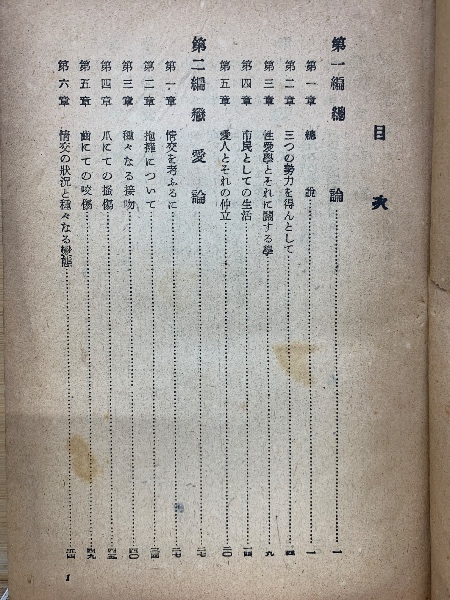 目次
第一編 總論 一
第一章 總說 一
第二章 三つの勢力を得んとして 四
第三章 性愛學とそれに關する學 九
第四章 市民としての生活 一四
第五章 愛人とそれの仲立 二〇
第二編 戀愛論 二七
第一章 情交を考ふるに 二七
第二章 抱擁について 三四
第三章 種々なる接吻 四〇
第四章 爪にての搔傷 四五
第五章 齒にての咬傷 四九
第六章 情交の狀況と種々なる變態 五四
1